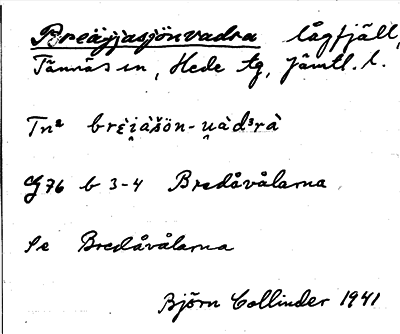 Breäjjasjönvadra lågfjäll,
Tännäs sn, Hede tg, Jämtl. l.
Tn² brɛ̀i̯àšön-u̯àdᵌrà
G76 b 3-4 Bredåvålarna
Se Bredåvålarna
Björn Collinder 1941